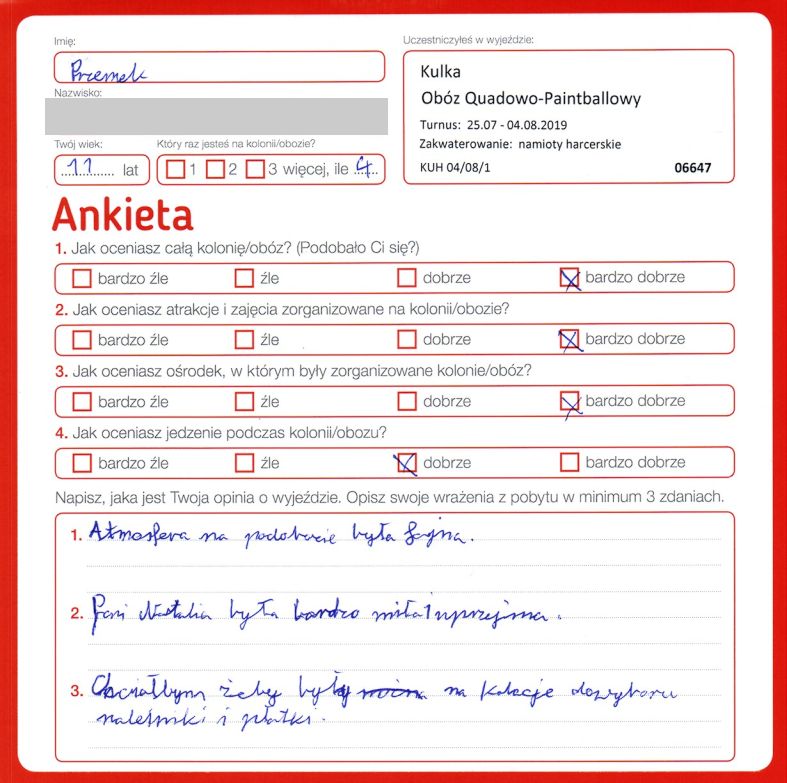 Imię:
Przemek
Nazwisko:
Twój wiek:
11 lat
Który raz jesteś na kolonii/obozie?
1 2 3 więcej, ile 4
Uczestniczyłeś w wyjeździe:
Kulka
Obóz Quadowo-Paintballowy
Turnus: 25.07 - 04.08.2019
Zakwaterowanie: namioty harcerskie
KUH 04/08/1 06647
Ankieta
1. Jak oceniasz całą kolonię/obóz? (Podobało Ci się?)
bardzo źle źle dobrze bardzo dobrze
2. Jak oceniasz atrakcje i zajęcia zorganizowane na kolonii/obozie?
bardzo źle źle dobrze bardzo dobrze
3. Jak oceniasz ośrodek, w którym były zorganizowane kolonie/obóz?
bardzo źle źle dobrze bardzo dobrze
4. Jak oceniasz jedzenie podczas kolonii/obozu?
bardzo źle źle dobrze bardzo dobrze
Napisz, jaka jest Twoja opinia o wyjeździe. Opisz swoje wrażenia z pobytu w minimum 3 zdaniach.
1. Atmosfera na podobozie była fajna.
2. Pani Natalia była bardzo miła i uprzejma.
3. Chciałbym żeby były na kolacje do wyboru
naleśniki i płatki.